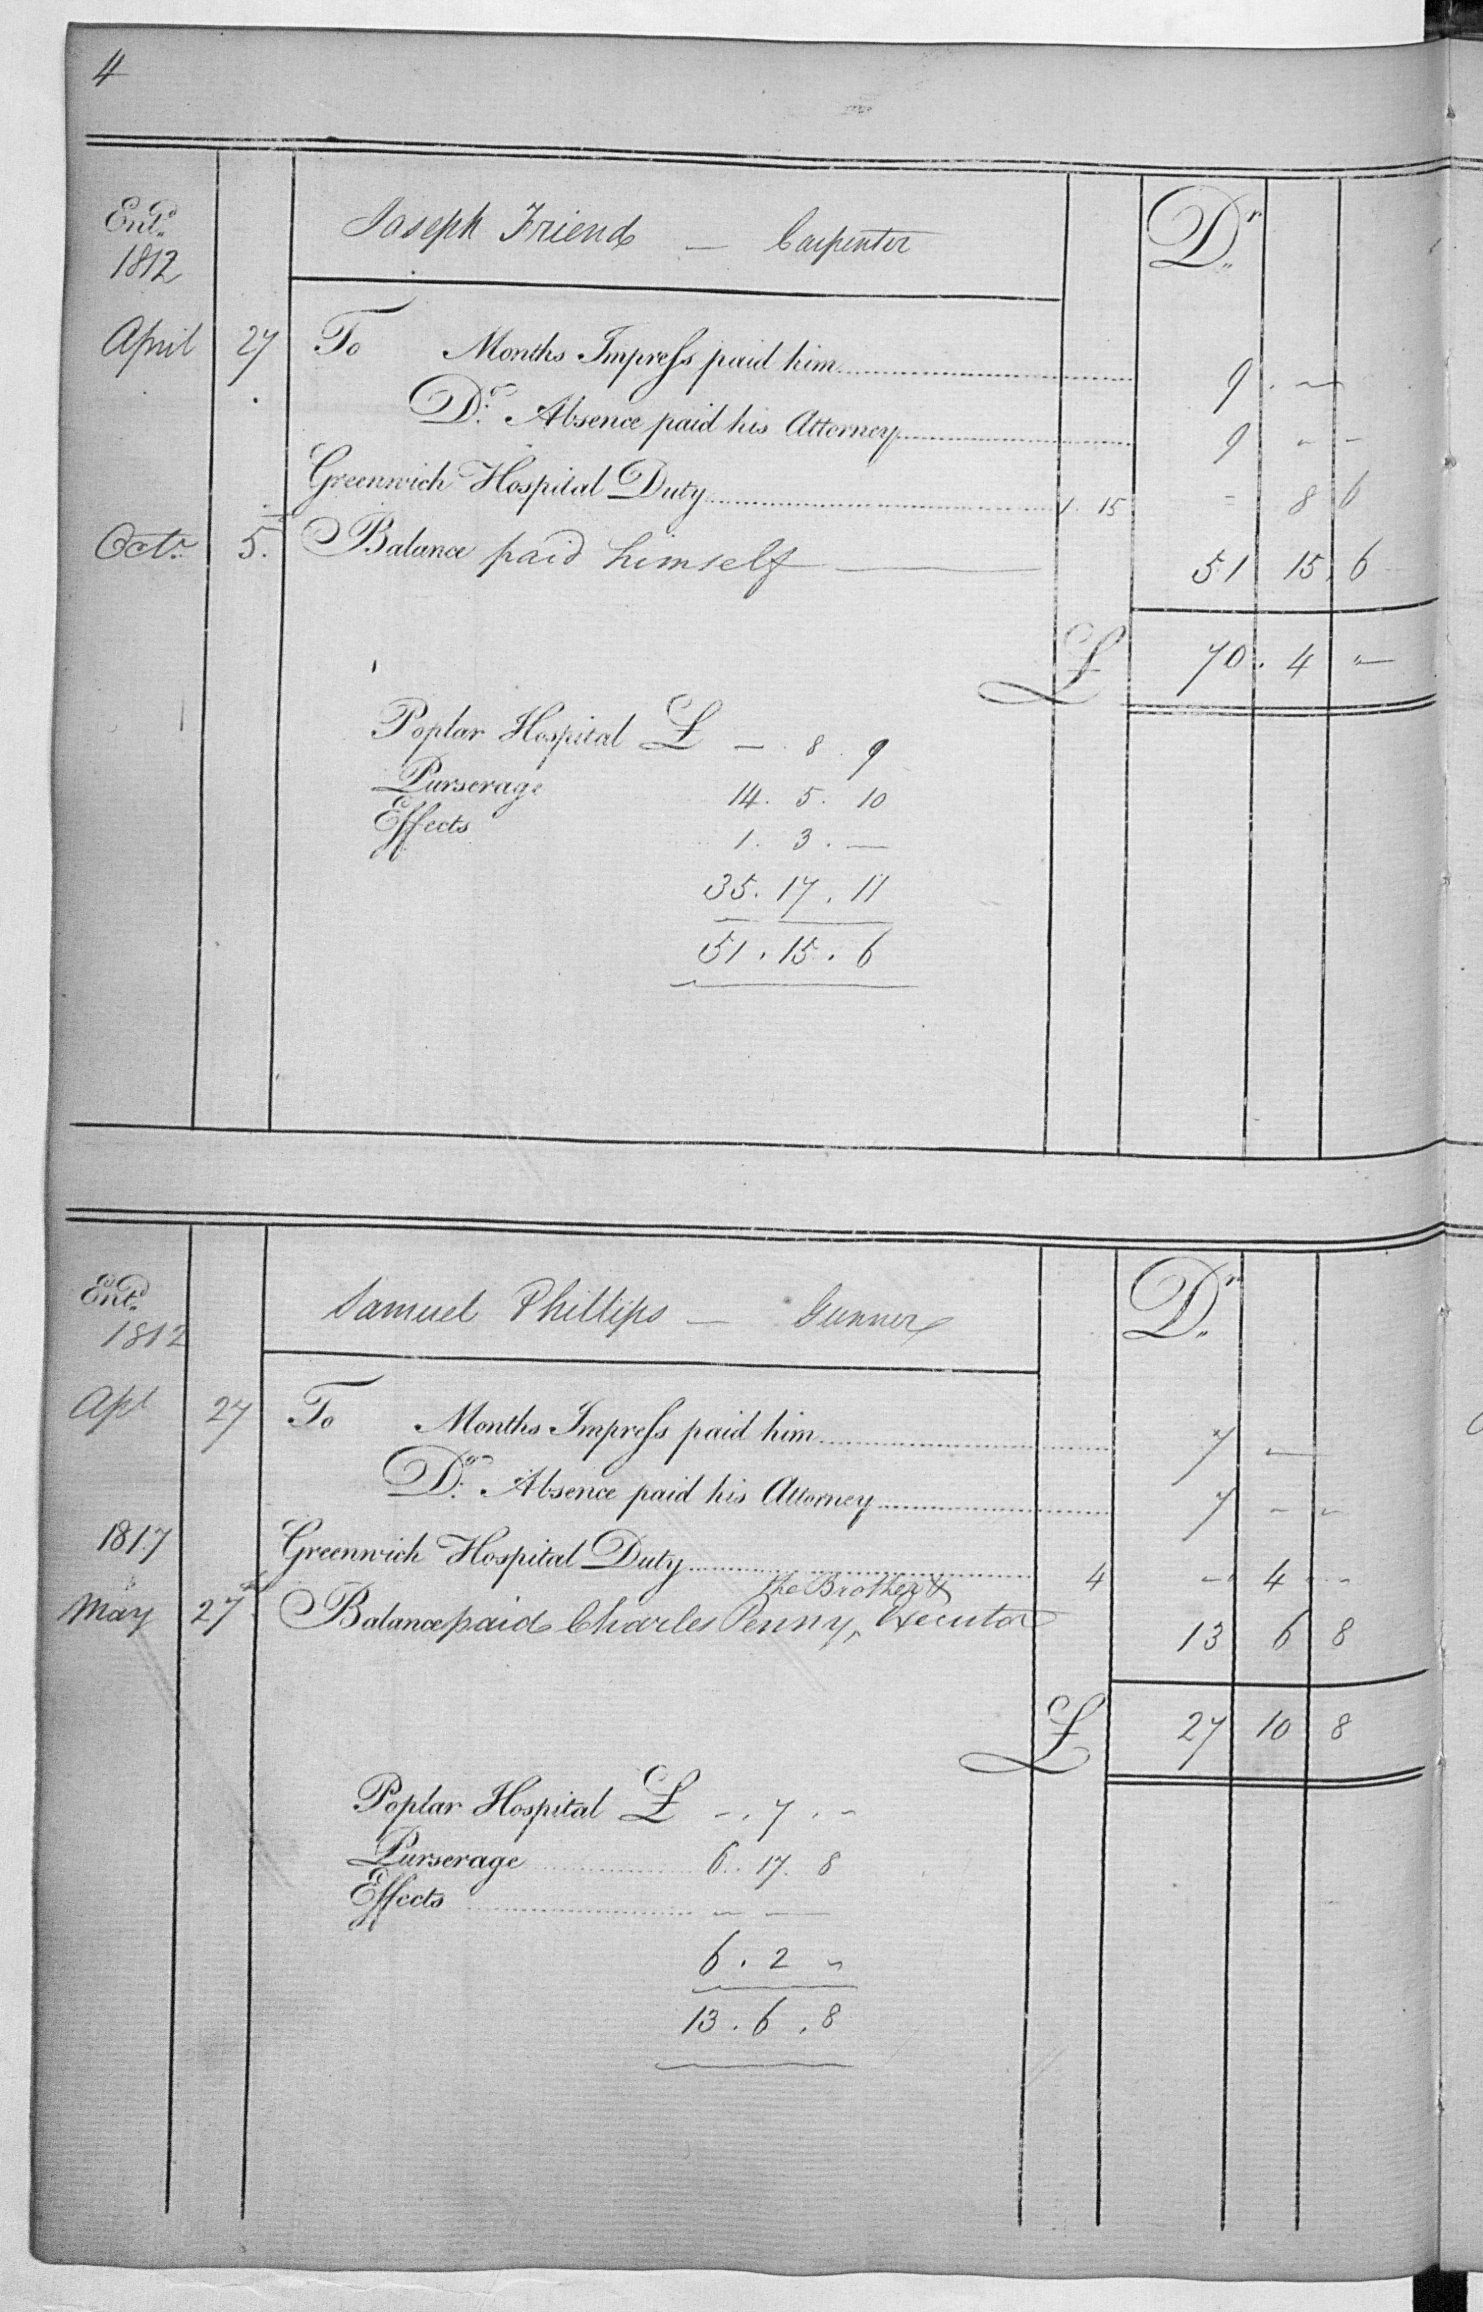 4
Entd. Joseph Friend — Carpenter Dr.
1812
April 27 To Months Impress paid him 9 . —
Do. Absence paid his Attorney 9 - -
Greenwich Hospital Duty 1 15 - 8 6
Octr. 5. Balance paid himself 51 15 6
£ 70 . 4 —
Poplar Hospital £ — . 8 . 9
Purserage 14 . 5 . 10
Effects 1 . 3 . —
35 . 17 . 11
51 . 15 . 6
Entd. Samuel Phillips — Gunner Dr.
1812
Apl 27 To Months Impress paid him 7 —
Do. Absence paid his Attorney 7 - -
1817 Greenwich Hospital Duty 4 - 4 -
the Brother &
May 27 Balance paid Charles Penny, Executor 13 6 8
£ 27 10 8
Poplar Hospital £ - . 7 . -
Purserage 6 . 17 . 8
Effects — —
6 . 2 -
13 . 6 . 8